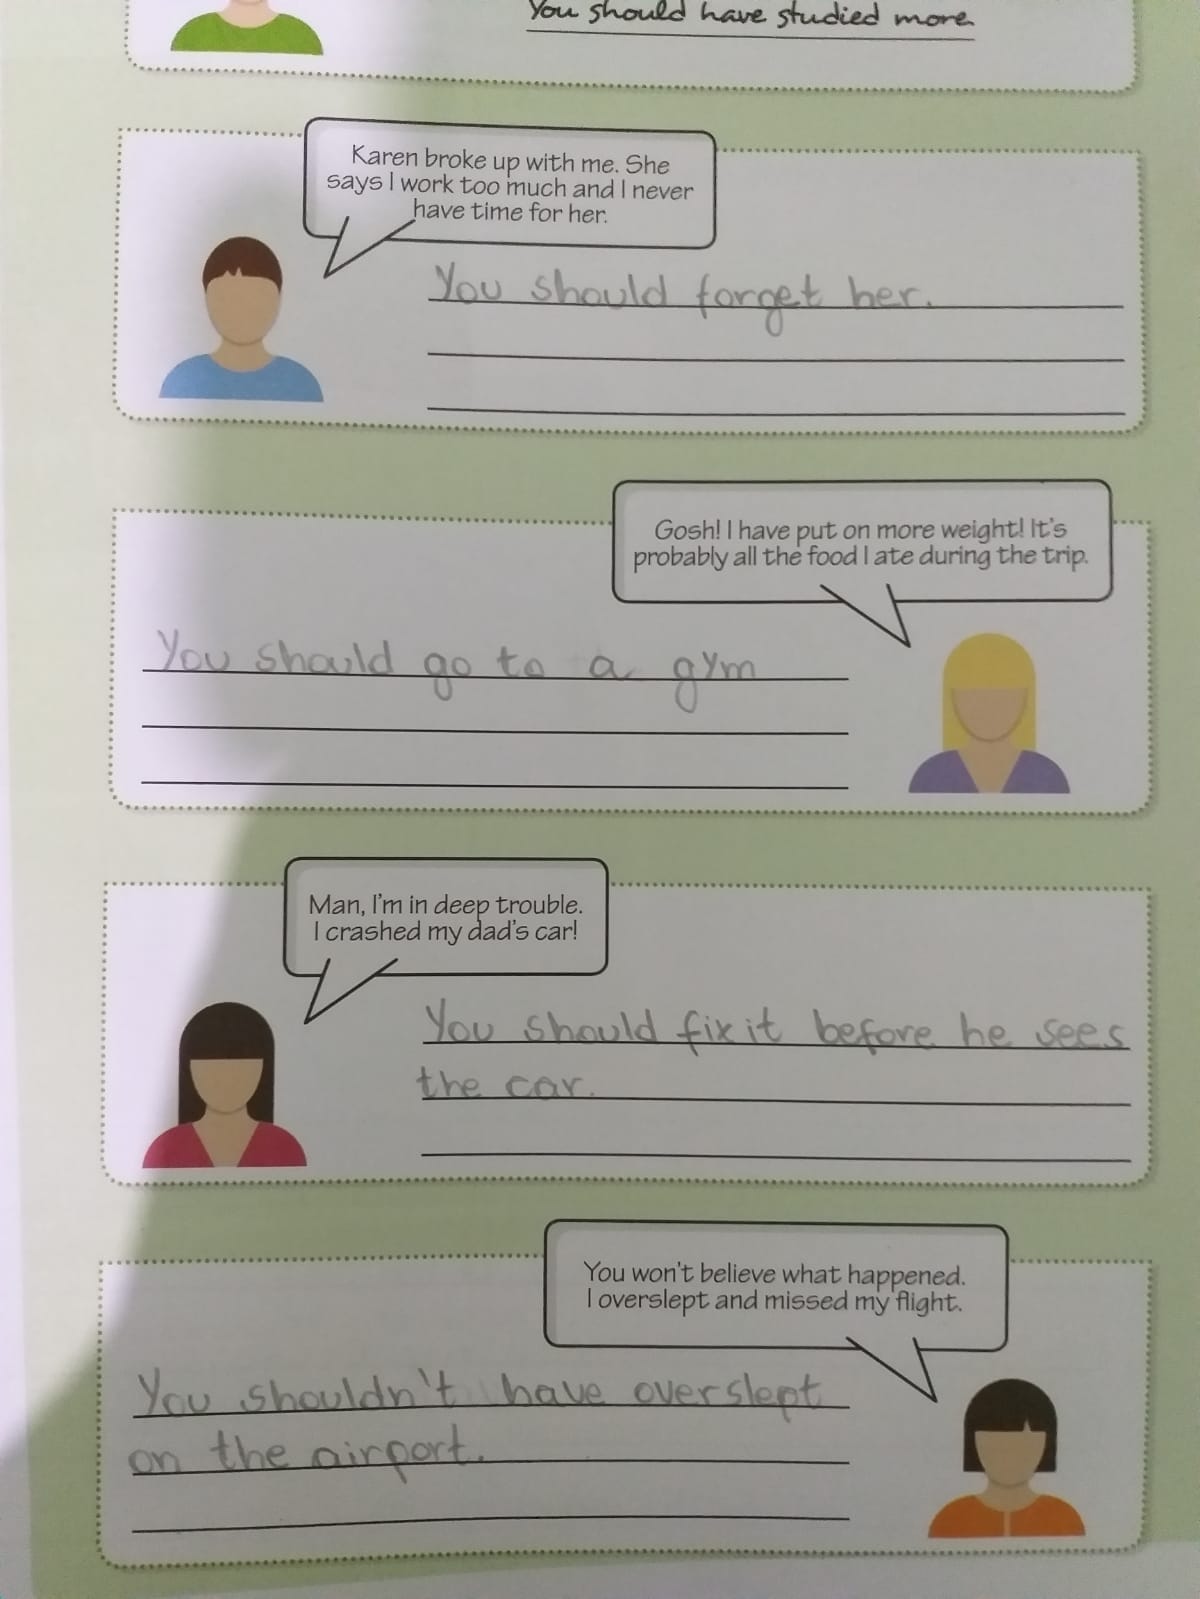 You should have studied more.
Karen broke up with me. She
says I work too much and I never
have time for her.
You should forget her.
Gosh! I have put on more weight! It's
probably all the food I ate during the trip.
You should go to a gym
Man, I'm in deep trouble.
I crashed my dad's car!
You should fix it before he sees
the car.
You won't believe what happened.
I overslept and missed my flight.
You shouldn't have overslept
on the airport.